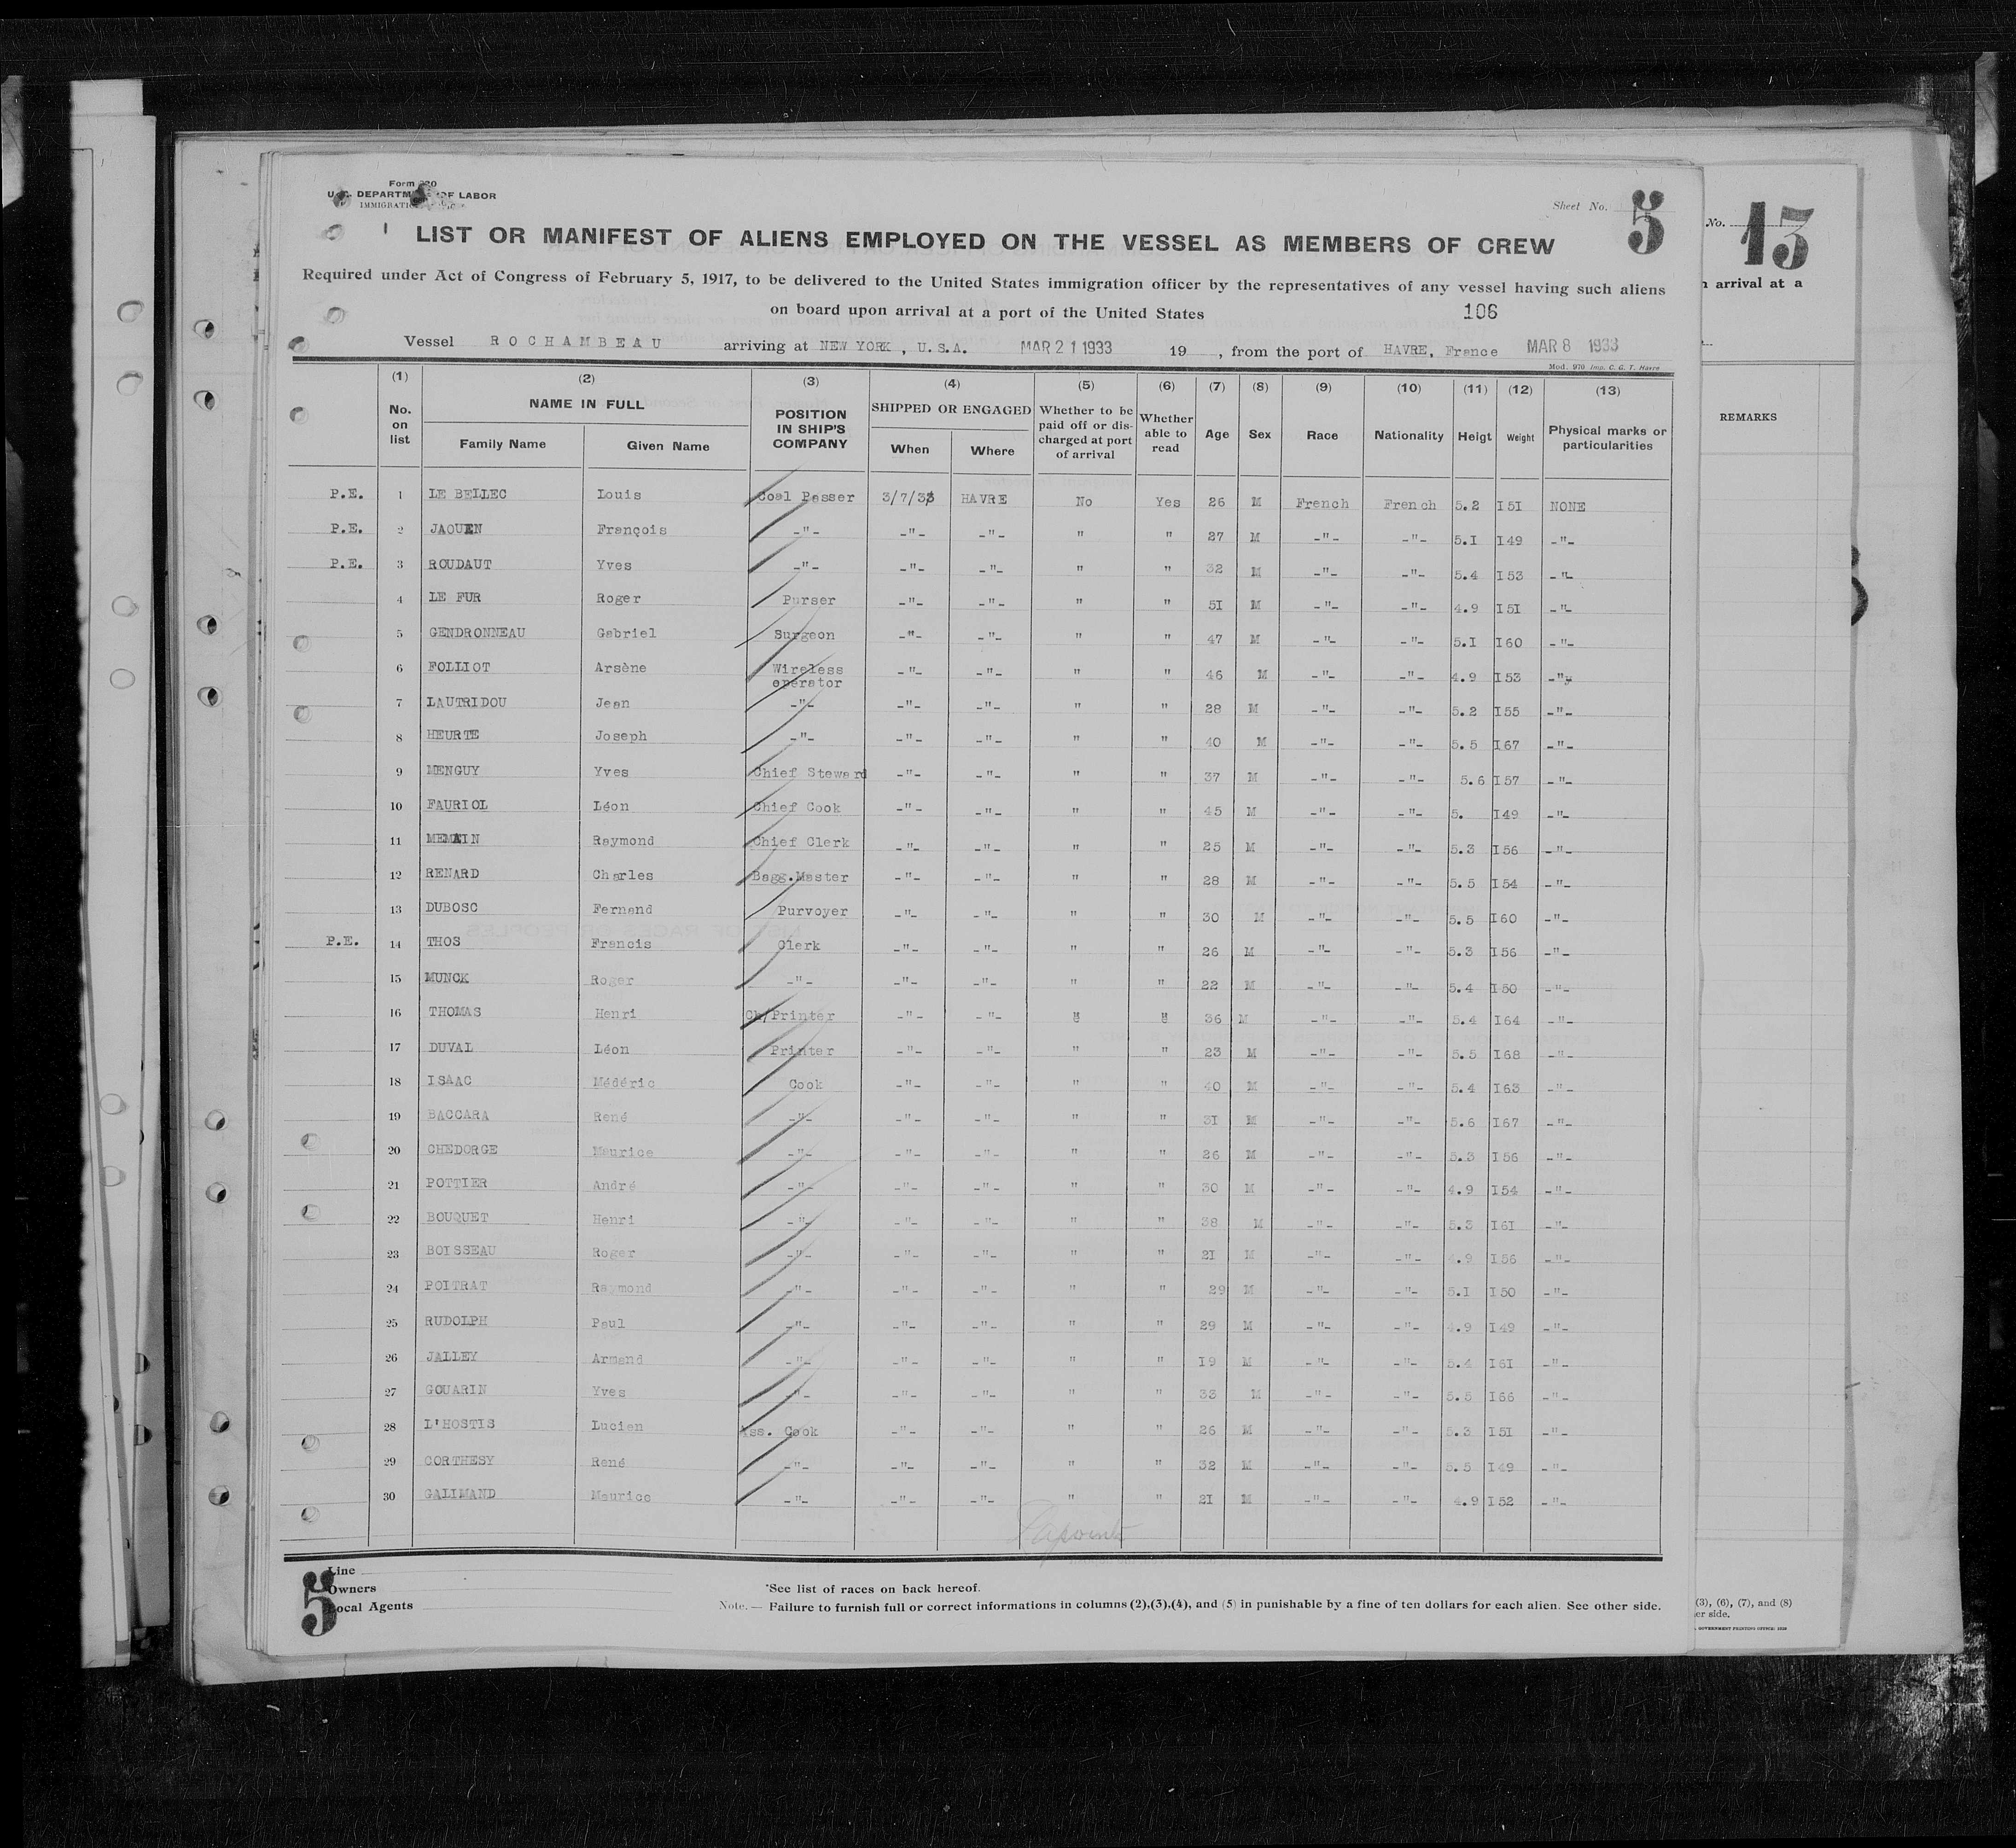 Form
U.S. DEPARTMENT OF LABOR
IMMIGRATION
Sheet No. 5
LIST OR MANIFEST OF ALIENS EMPLOYED ON THE VESSEL AS MEMBERS OF CREW
Required under Act of Congress of February 5, 1917, to be delivered to the United States immigration officer by the representatives of any vessel having such aliens
on board upon arrival at a port of the United States 106
Vessel ROCHAMBEAU arriving at NEW YORK, U.S.A. MAR 21 1933 19 , from the port of HAVRE, France MAR 8 1933
Mod. 970 Imp. C. G. T. Havre
(1) (2) (3) (4) (5) (6) (7) (8) (9) (10) (11) (12) (13)
No. on list NAME IN FULL Family Name Given Name POSITION IN SHIP'S COMPANY SHIPPED OR ENGAGED When Where Whether to be paid off or discharged at port of arrival Whether able to read Age Sex Race Nationality Heigt Weight Physical marks or particularities
P.E. 1 LE BELLEC Louis Coal Passer 3/7/33 HAVRE No Yes 26 M French French 5.2 I5I NONE
P.E. 2 JAOUEN François -"- -"- -"- " " 27 M -"- -"- 5.I I49 -"-
P.E. 3 ROUDAUT Yves -"- -"- -"- " " 32 M -"- -"- 5.4 I53 -"-
4 LE FUR Roger Purser -"- -"- " " 5I M -"- -"- 4.9 I5I -"-
5 GENDRONNEAU Gabriel Surgeon -"- -"- " " 47 M -"- -"- 5.I I60 -"-
6 FOLLIOT Arsène Wireless operator -"- -"- " " 46 M -"- -"- 4.9 I53 -"-
7 LAUTRIDOU Jean -"- -"- -"- " " 28 M -"- -"- 5.2 I55 -"-
8 HEURTE Joseph -"- -"- -"- " " 40 M -"- -"- 5.5 I67 -"-
9 MENGUY Yves Chief Steward -"- -"- " " 37 M -"- -"- 5.6 I57 -"-
10 FAURIOL Léon Chief Cook -"- -"- " " 45 M -"- -"- 5. I49 -"-
11 MEMAIN Raymond Chief Clerk -"- -"- " " 25 M -"- -"- 5.3 I56 -"-
12 RENARD Charles Bagg.Master -"- -"- " " 28 M -"- -"- 5.5 I54 -"-
13 DUBOSC Fernand Purvoyer -"- -"- " " 30 M -"- -"- 5.5 I60 -"-
P.E. 14 THOS Francis Clerk -"- -"- " " 26 M -"- -"- 5.3 I56 -"-
15 MUNCK Roger -"- -"- -"- " " 22 M -"- -"- 5.4 I50 -"-
16 THOMAS Henri Ch/Printer -"- -"- " " 36 M -"- -"- 5.4 I64 -"-
17 DUVAL Léon Printer -"- -"- " " 23 M -"- -"- 5.5 I68 -"-
18 ISAAC Médéric Cook -"- -"- " " 40 M -"- -"- 5.4 I63 -"-
19 BACCARA René -"- -"- -"- " " 3I M -"- -"- 5.6 I67 -"-
20 CHEDORGE Maurice -"- -"- -"- " " 26 M -"- -"- 5.3 I56 -"-
21 POTTIER André -"- -"- -"- " " 30 M -"- -"- 4.9 I54 -"-
22 BOUQUET Henri -"- -"- -"- " " 38 M -"- -"- 5.3 I6I -"-
23 BOISSEAU Roger -"- -"- -"- " " 2I M -"- -"- 4.9 I56 -"-
24 POITRAT Raymond -"- -"- -"- " " 29 M -"- -"- 5.I I50 -"-
25 RUDOLPH Paul -"- -"- -"- " " 29 M -"- -"- 4.9 I49 -"-
26 JALLEY Armand -"- -"- -"- " " I9 M -"- -"- 5.4 I6I -"-
27 GOUARIN Yves -"- -"- -"- " " 33 M -"- -"- 5.5 I66 -"-
28 L'HOSTIS Lucien Ass. Cook -"- -"- " " 26 M -"- -"- 5.3 I5I -"-
29 CORTHESY René -"- -"- -"- " " 32 M -"- -"- 5.5 I49 -"-
30 GALIMAND Maurice -"- -"- -"- " " 2I M -"- -"- 4.9 I52 -"-
5
Line
Owners
Local Agents
*See list of races on back hereof.
Note. — Failure to furnish full or correct informations in columns (2),(3),(4), and (5) in punishable by a fine of ten dollars for each alien. See other side.
No. 13
arrival at a
REMARKS
(3), (6), (7), and (8)
er side.
GOVERNMENT PRINTING OFFICE